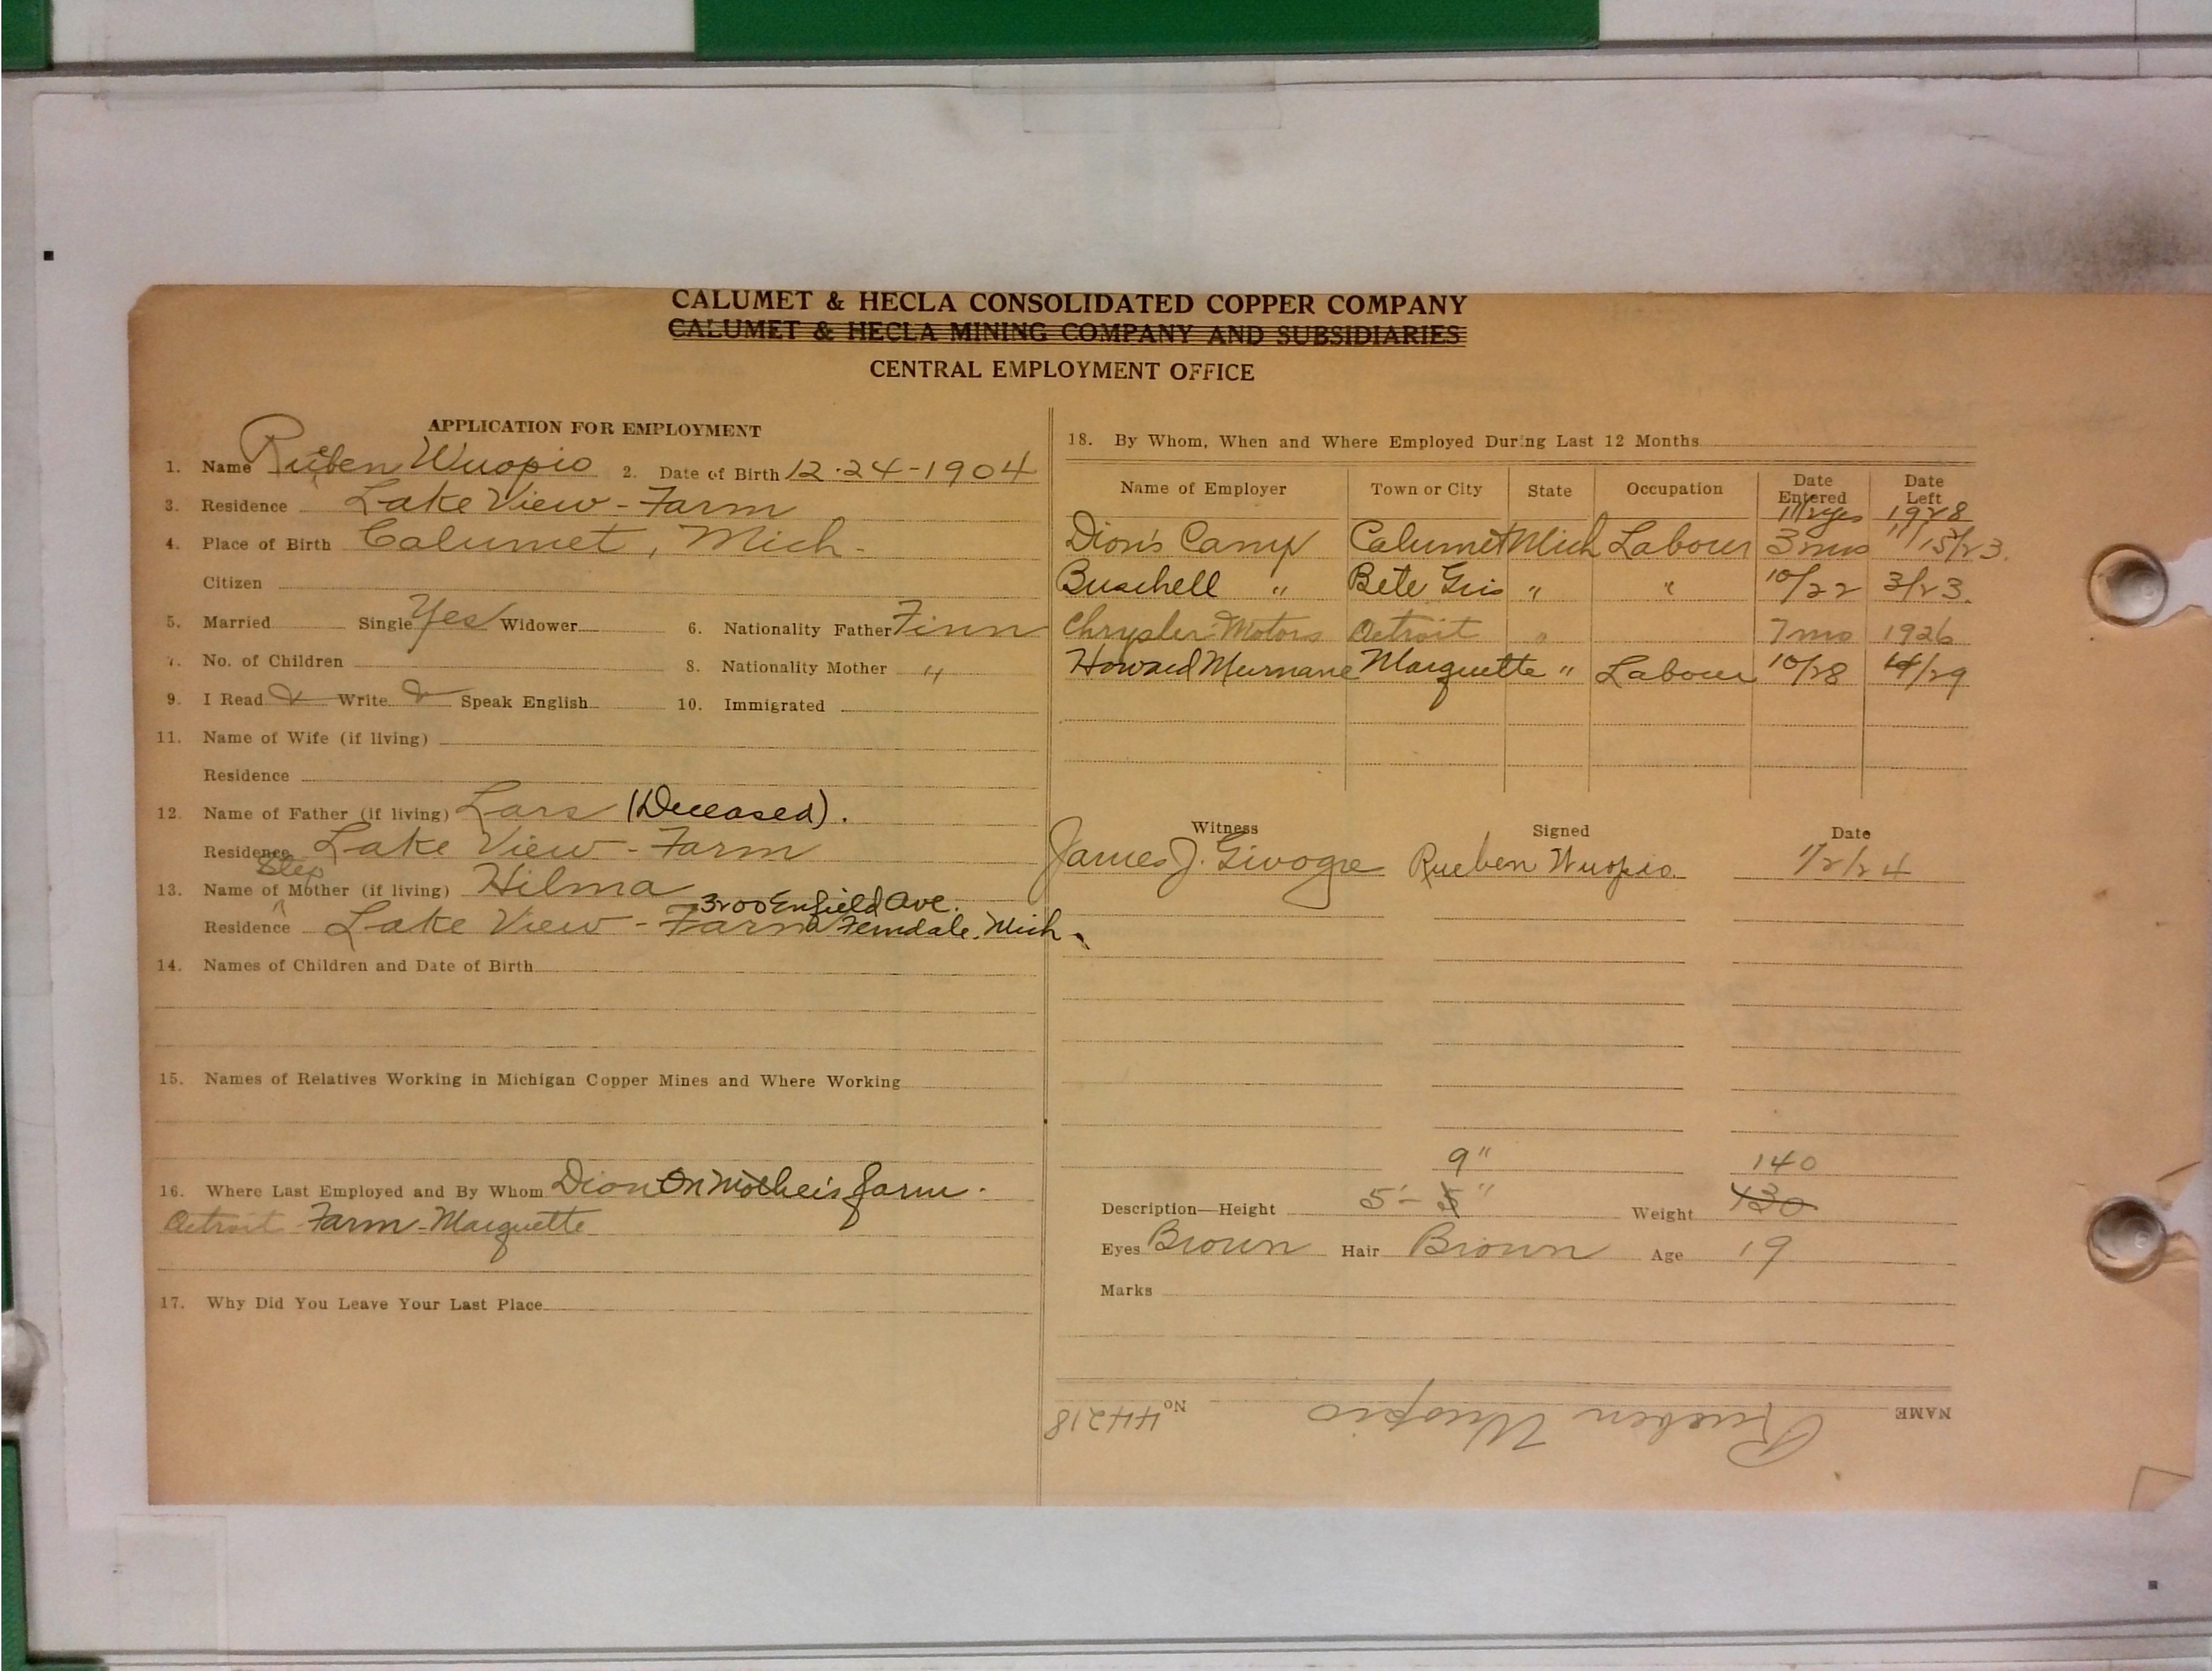 CALUMET & HECLA CONSOLIDATED COPPER COMPANY
CALUMET & HECLA MINING COMPANY AND SUBSIDIARIES
CENTRAL EMPLOYMENT OFFICE
APPLICATION FOR EMPLOYMENT
1. Name Rueben Wuopio 2. Date of Birth 12-24-1904
3. Residence Lake View - Farm
4. Place of Birth Calumet, Mich.
Citizen
5. Married Single Yes Widower 6. Nationality Father Finn
7. No. of Children 8. Nationality Mother "
9. I Read Write Speak English 10. Immigrated
11. Name of Wife (if living)
Residence
12. Name of Father (if living) Lars (Deceased).
Residence Lake View - Farm
Step
13. Name of Mother (if living) Hilma
3200 Enfield Ave.
Residence Lake View - Farm Ferndale, Mich.
14. Names of Children and Date of Birth
15. Names of Relatives Working in Michigan Copper Mines and Where Working
16. Where Last Employed and By Whom Dion On Mother's farm.
Detroit Farm - Marquette
17. Why Did You Leave Your Last Place
18. By Whom, When and Where Employed During Last 12 Months
Name of Employer Town or City State Occupation Date Entered Date Left
1928
Dion's Camp Calumet Mich Labour 3 mos 11/15/23.
Buschell " Bete Gris " " 10/22 3/23.
Chrysler Motors Detroit " 7 mo 1926
Howard Murnane Marquette " Labour 10/28 4/29
Witness Signed Date
James J. Rueben Wuopio 1/2/24
9" 140
Description—Height 5'-5" Weight 130
Eyes Brown Hair Brown Age 19
Marks
NAME Rueben Wuopio No 44218